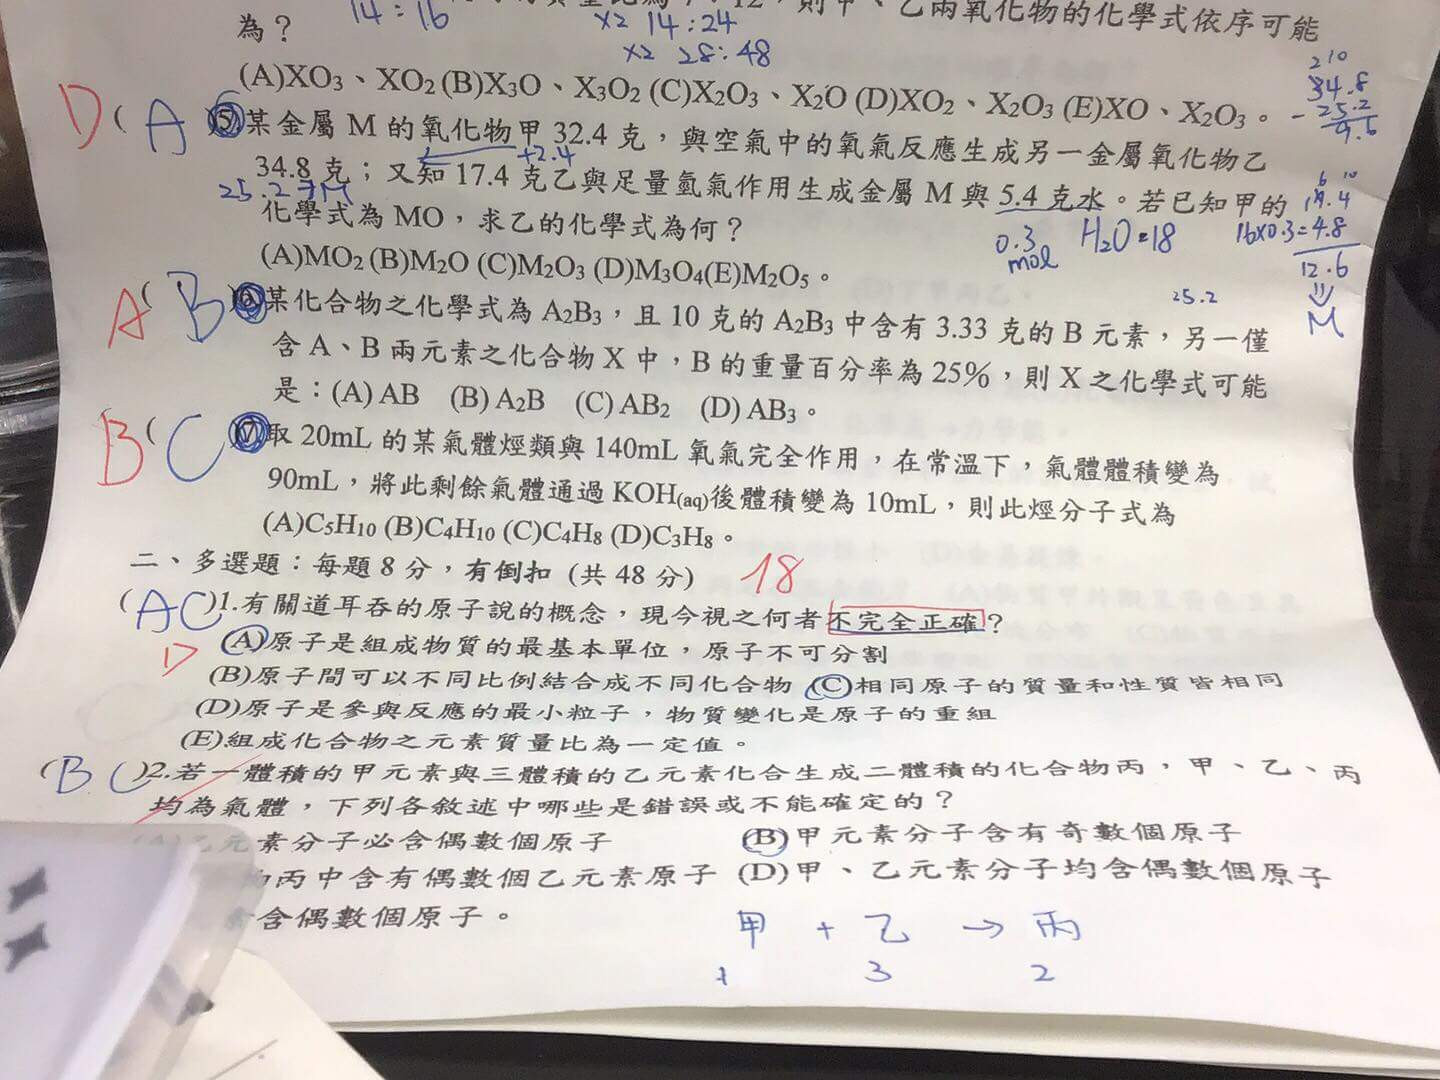 14:16 ×2 14:24
為？ ×2 28:48
(A)XO₃、XO₂ (B)X₃O、X₃O₂ (C)X₂O₃、X₂O (D)XO₂、X₂O₃ (E)XO、X₂O₃。
34.8
- 25.2
9.6
D ( A )5.某金屬 M 的氧化物甲 32.4 克，與空氣中的氧氣反應生成另一金屬氧化物乙
+2.4
34.8 克；又知 17.4 克乙與足量氫氣作用生成金屬 M 與 5.4 克水。若已知甲的
25.2 → M
化學式為 MO，求乙的化學式為何？
0.3 mol H₂O=18
16×0.3=4.8
12.6
⇓
M
(A)MO₂ (B)M₂O (C)M₂O₃ (D)M₃O₄(E)M₂O₅。
25.2
A ( B )6.某化合物之化學式為 A₂B₃，且 10 克的 A₂B₃ 中含有 3.33 克的 B 元素，另一僅
含 A、B 兩元素之化合物 X 中，B 的重量百分率為 25%，則 X 之化學式可能
是：(A) AB (B) A₂B (C) AB₂ (D) AB₃。
B ( C )7.取 20mL 的某氣體烴類與 140mL 氧氣完全作用，在常溫下，氣體體積變為
90mL，將此剩餘氣體通過 KOH(aq)後體積變為 10mL，則此烴分子式為
(A)C₅H₁₀ (B)C₄H₁₀ (C)C₄H₈ (D)C₃H₈。
二、多選題：每題 8 分，有倒扣 (共 48 分) 18
( AC )1.有關道耳吞的原子說的概念，現今視之何者不完全正確？
D (A)原子是組成物質的最基本單位，原子不可分割
(B)原子間可以不同比例結合成不同化合物 (C)相同原子的質量和性質皆相同
(D)原子是參與反應的最小粒子，物質變化是原子的重組
(E)組成化合物之元素質量比為一定值。
( B C )2.若一體積的甲元素與三體積的乙元素化合生成二體積的化合物丙，甲、乙、丙
均為氣體，下列各敘述中哪些是錯誤或不能確定的？
元素分子必含偶數個原子 (B)甲元素分子含有奇數個原子
丙中含有偶數個乙元素原子 (D)甲、乙元素分子均含偶數個原子
含偶數個原子。
甲 + 乙 → 丙
1 3 2